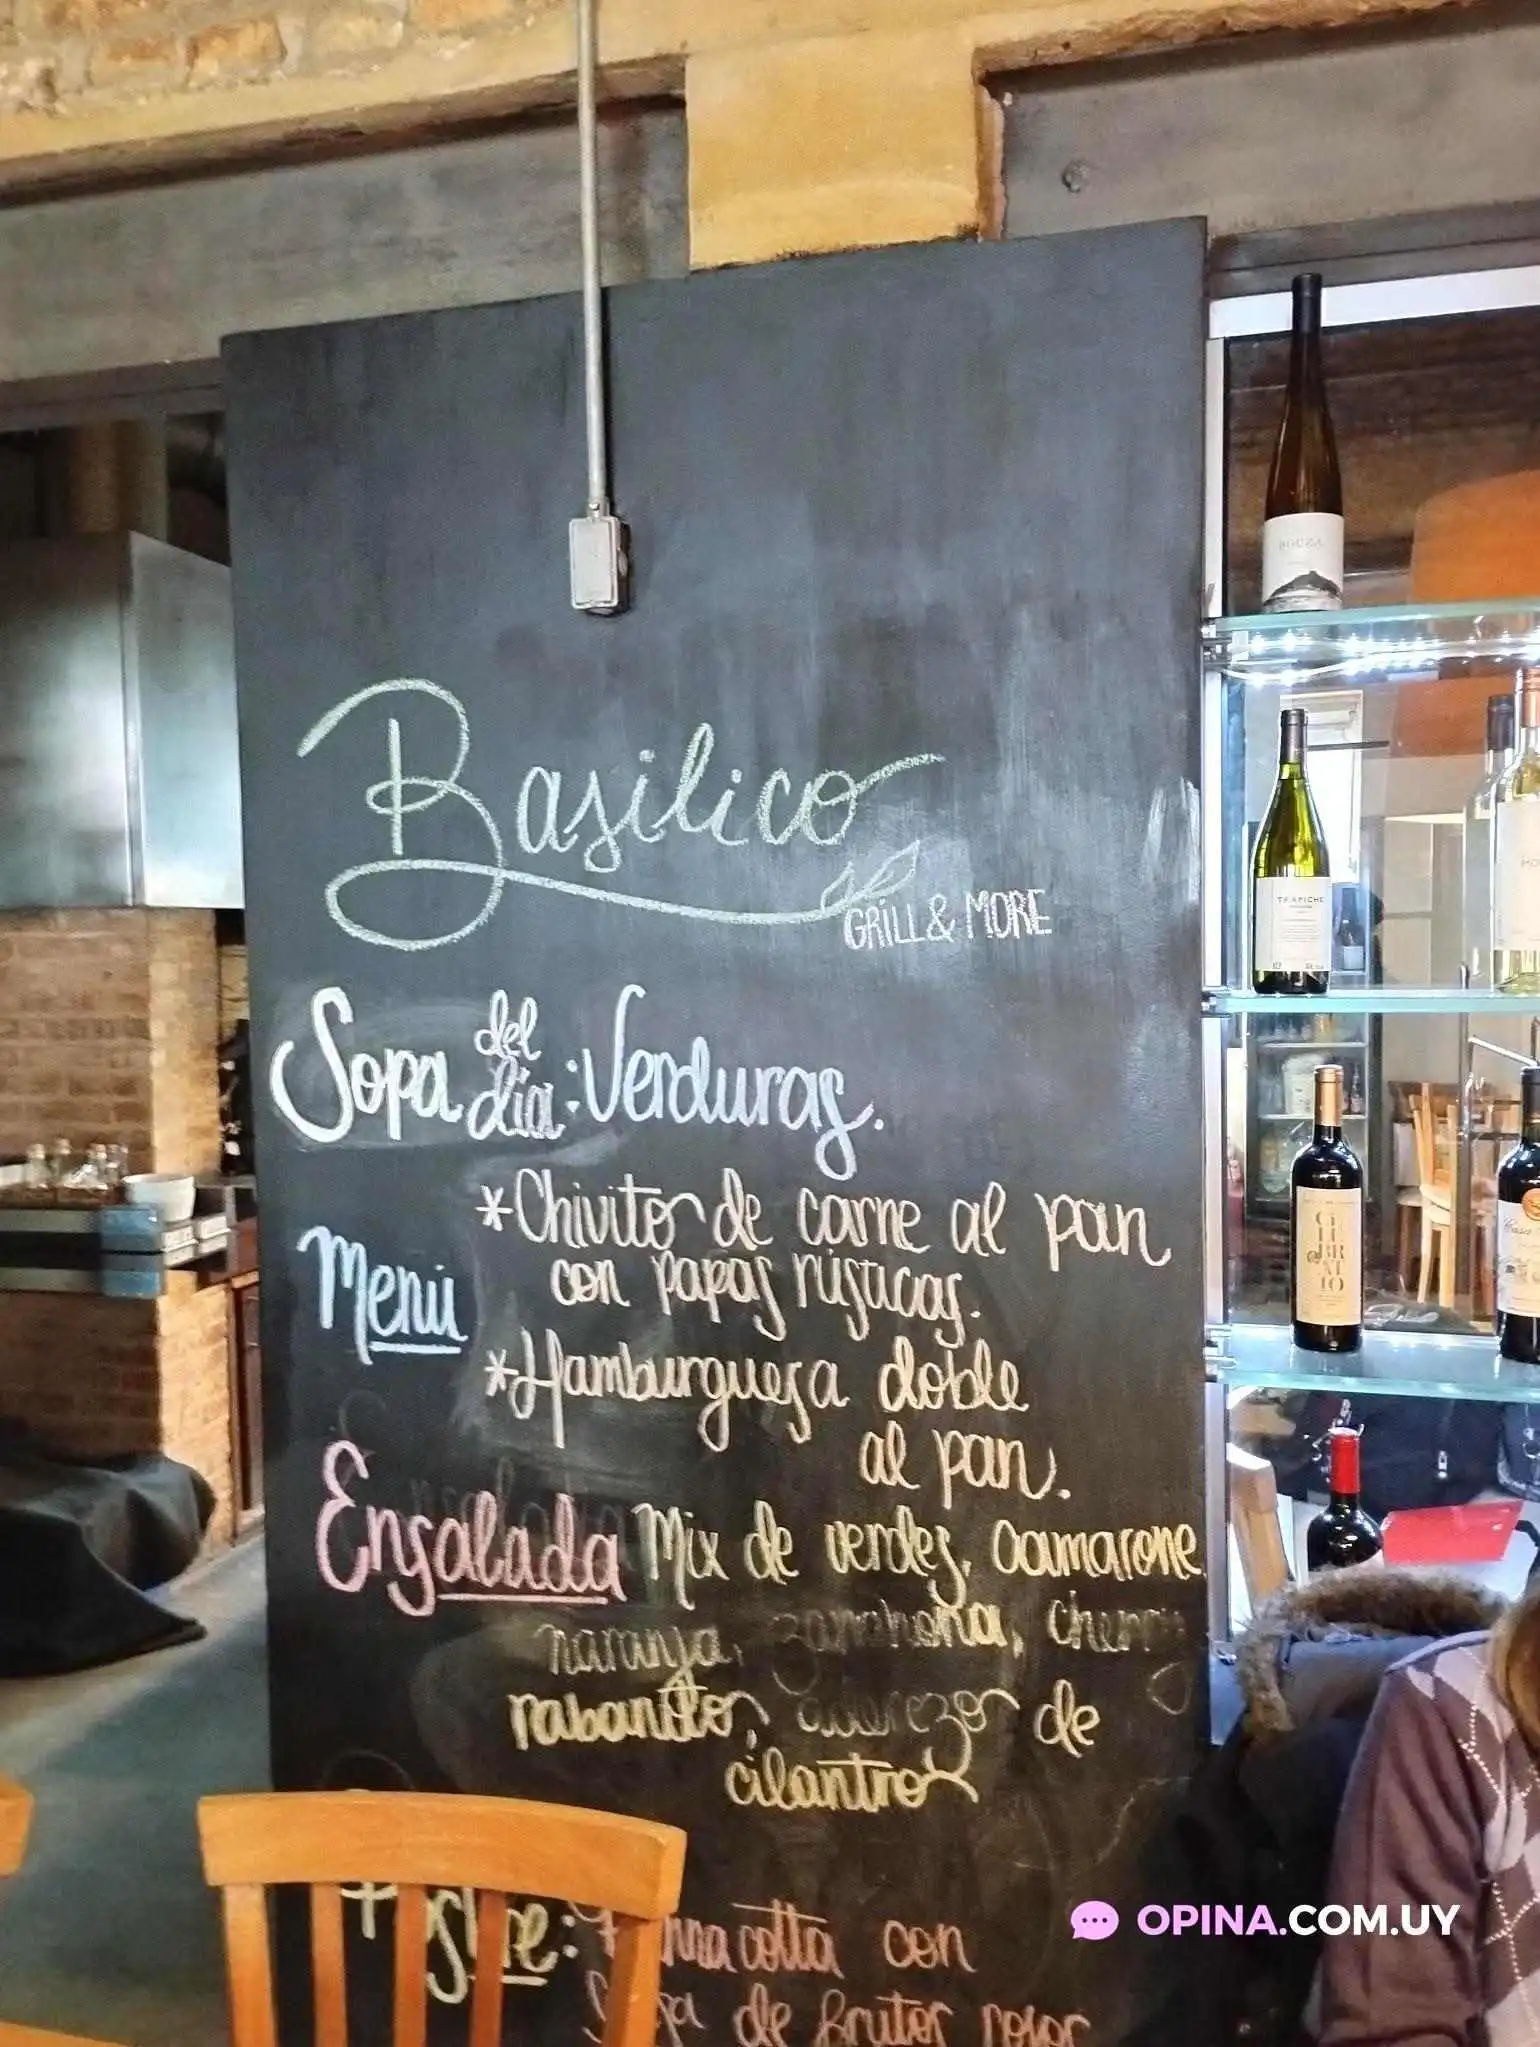 Basilico
GRILL & MORE
Sopa del día: Verduras.
Menú
*Chivito de carne al pan
con papas rústicas.
*Hamburguesa doble
al pan.
Ensalada Mix de verdes, camarones
naranja, zanahoria, cherry
rabanito, aderezo de
cilantro
Postre: Panna cotta con
de frutos rojos
BOUZA
TRAPICHE
OPINA.COM.UY